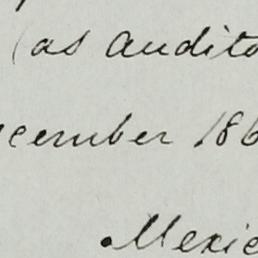 (as Audito
cember 186
Mexic